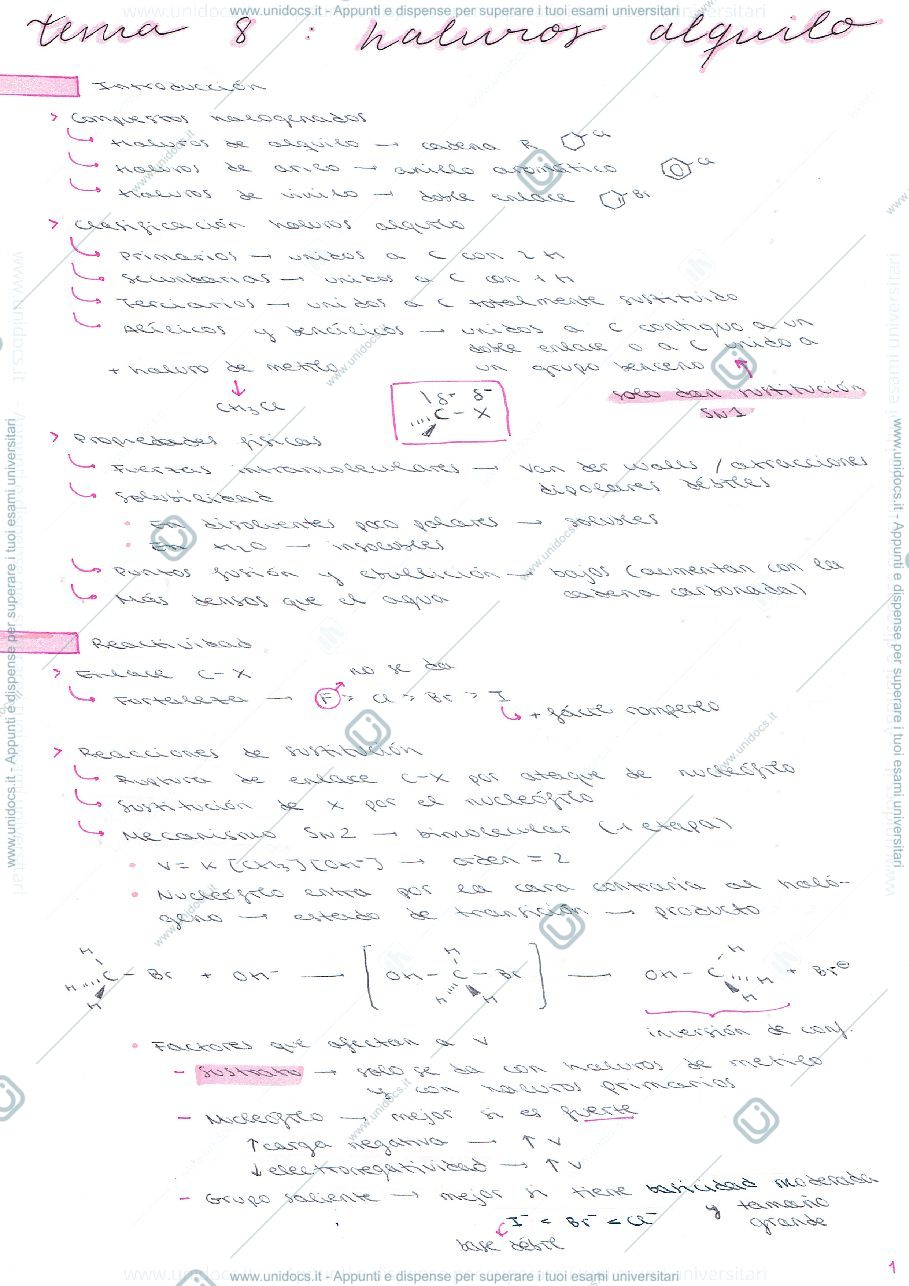 www.unidocs.it - Appunti e dispense per superare i tuoi esami universitari
tema 8 : haluros alquilo
Introducción
> Compuestos halogenados
Haluros de alquilo → cadena R Cl
Haluros de arilo → anillo aromático Cl
Haluros de vinilo → doble enlace Br
> Clasificación haluros alquilo
Primarios → unidos a C con 2 H
Secundarios → unidos a C con 1 H
Terciarios → unidos a C totalmente sustituido
Alílicos y bencílicos → unidos a C contiguo a un
doble enlace o a C unido a
un grupo benceno
+ haluro de metilo
CH3Cl
δ- δ-
C - X
solo dan sustitución
SN1
> Propiedades físicas
Fuerzas intramoleculares → Van der Walls / atracciones
dipolares débiles
Solubilidad
• En disolventes poco polares → solubles
• En H2O → insolubles
Puntos fusión y ebullición → bajos (aumentan con la
cadena carbonada)
Más densos que el agua
Reactividad
> Enlace C-X
no se da
Fortaleza → F > Cl > Br > I
+ fácil romperlo
> Reacciones de sustitución
Ruptura de enlace C-X por ataque de nucleófilo
Sustitución de X por el nucleófilo
Mecanismo SN2 → bimolecular (1 etapa)
• V = K [CH3] [OH-] → orden = 2
• Nucleófilo entra por la cara contraria al haló-
geno → estado de transición → producto
H H H C - Br + OH- — [ OH - C - Br H H H ] — OH - C H H H + Br⊖
inversión de conf.
• Factores que afectan a v
- Sustrato → solo se da con haluros de metilo
y con haluros primarios
- Nucleófilo → mejor si es fuerte
↑ carga negativa → ↑ v
↓ electronegatividad → ↑ v
- Grupo saliente → mejor si tiene basicidad moderada
y tamaño
grande
I- < Br- < Cl-
base débil
1
www.unidocs.it - Appunti e dispense per superare i tuoi esami universitari